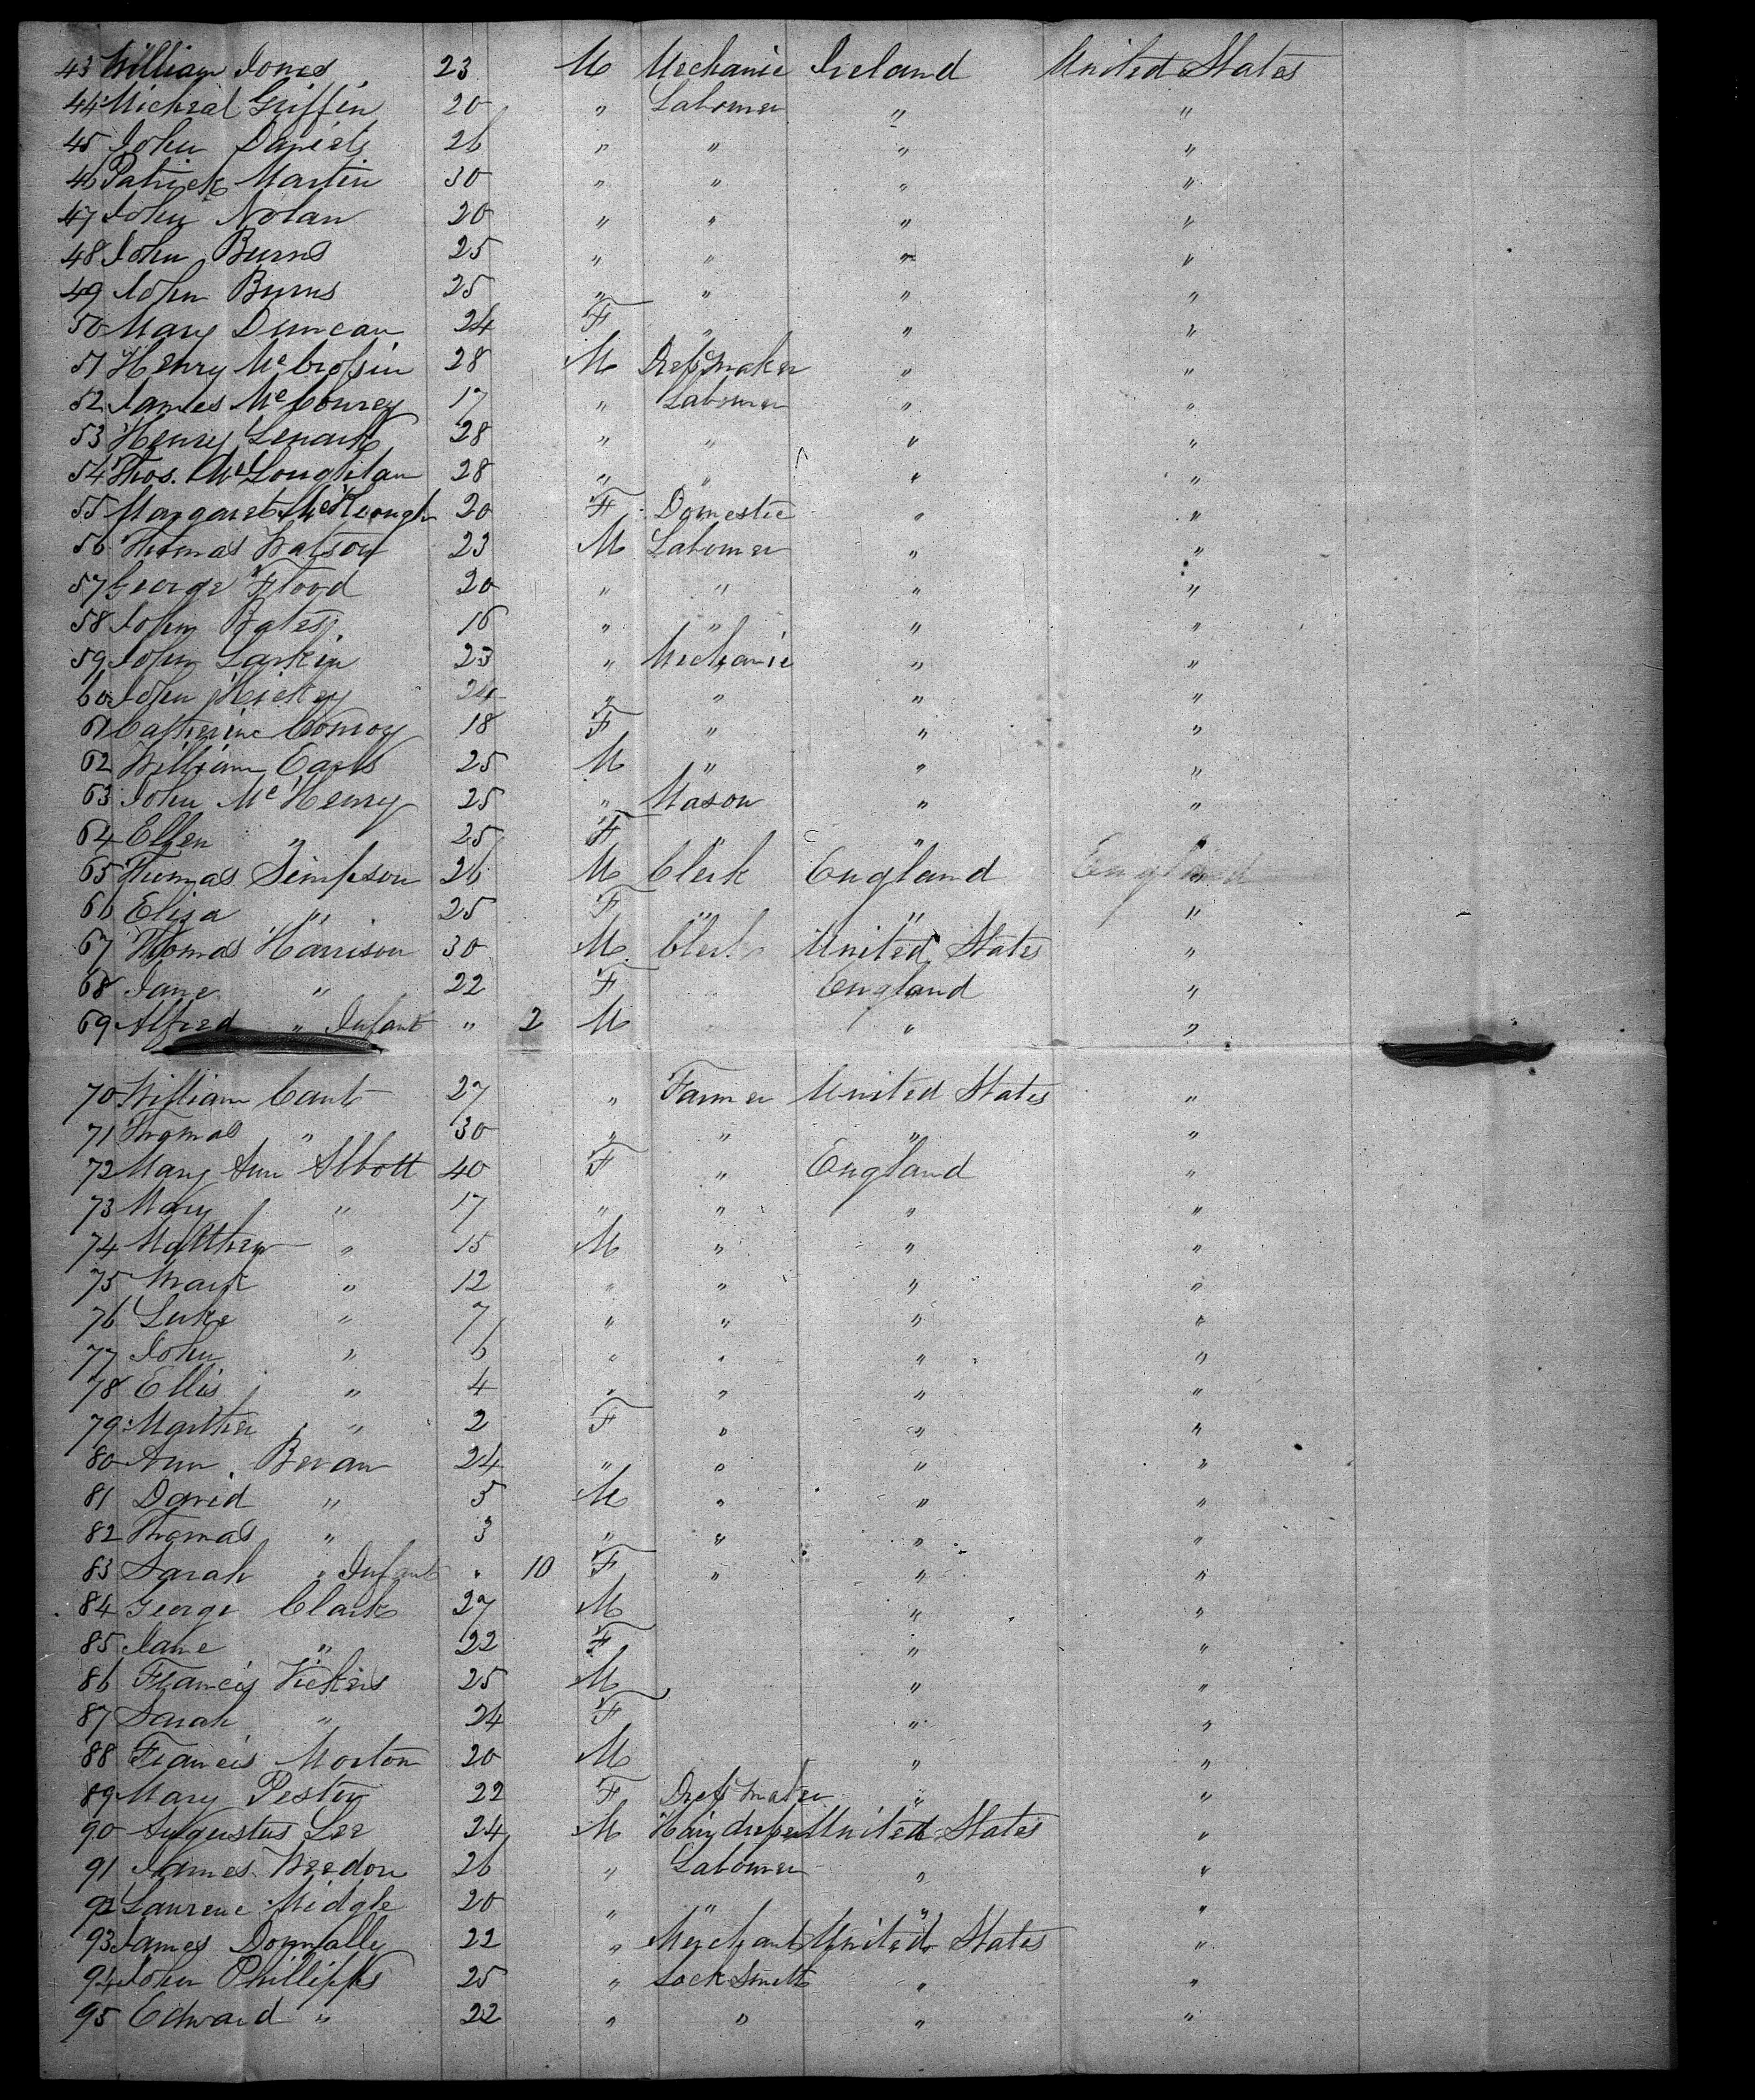 43 William Jones 23 M Mechanic Ireland United States
44 Micheal Griffin 20 " Labourer " "
45 John Daniels 26 " " " "
46 Patrick Martin 30 " " " "
47 John Nolan 20 " " " "
48 John Burns 25 " " " "
49 John Burns 25 " " " "
50 Mary Duncan 24 F " " "
51 Henry McCrossin 28 M Dressmaker " "
52 James McCourey 17 " Labourer " "
53 Henry 28 " " " "
54 Thos. McLoughlan 28 " " " "
55 Margaret McKeough 20 F Domestic " "
56 Thomas Watson 23 M Labourer " "
57 George Flood 20 " " " "
58 John Bates 16 " " " "
59 John Larkin 23 " Mechanic " "
60 John Hickey 24 " " " "
61 Catherine Conroy 18 F " " "
62 William Earls 25 M " " "
63 John McHenry 25 " Mason " "
64 Ellen " 25 F " " "
65 Thomas Simpson 26 M Clerk England England "
66 Eliza " 25 F " " "
67 Thomas Harrison 30 M Clerk United States "
68 Jane " 22 F England "
69 Alfred " Infant " 2 M " "
70 William Cant 27 " Farmer United States "
71 Thomas " 30 " " " "
72 Mary Ann Abbott 40 F " England "
73 Mary " 17 " " " "
74 Matthew " 15 M " " "
75 Mark " 12 " " " "
76 Luke " 7 " " " "
77 John " 6 " " " "
78 Ellis " 4 " " " "
79 Marther " 2 F " " "
80 Ann Bevan 24 " " " "
81 David " 5 M " " "
82 Thomas " 3 " " " "
83 Sarah " Infant " 10 F " " "
84 George Clark 27 M " "
85 Jane " 22 F " "
86 Francis Vickers 25 M " "
87 Sarah " 24 F " "
88 Francis Morton 20 M " "
89 Mary Peston 22 F Dressmaker " "
90 Augustus Lee 24 M Hairdresser United States "
91 James Weedon 26 " Labourer " "
92 Laurenc Midgle 20 " " " "
93 James Donnally 22 " Merchant United States "
94 John Phillipps 25 " Lock Smith " "
95 Edward " 22 " " " "